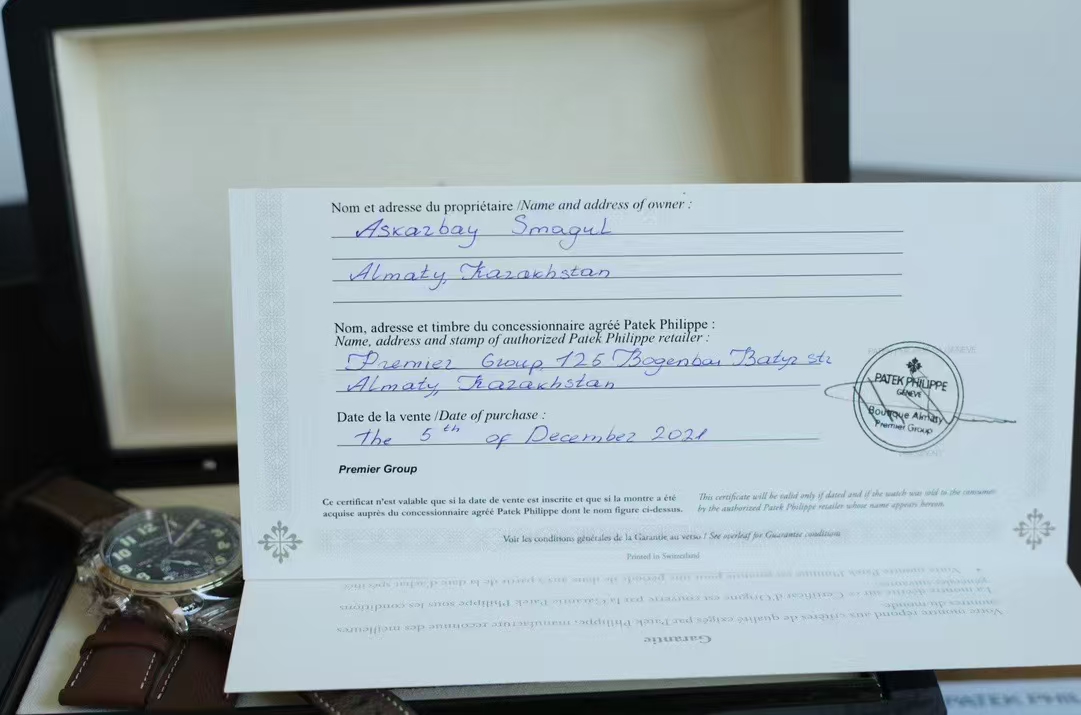 Nom et adresse du propriétaire /Name and address of owner :
Askarbay Smagul
Almaty, Kazakhstan
Nom, adresse et timbre du concessionnaire agréé Patek Philippe :
Name, address and stamp of authorized Patek Philippe retailer :
Premier Group, 125 Bogenbai Batyr str
Almaty, Kazakhstan
PATEK PHILIPPE
GENEVE
Boutique Almaty
Premier Group
Date de la vente /Date of purchase :
The 5th of December 2021
Premier Group
Ce certificat n'est valable que si la date de vente est inscrite et que si la montre a été
acquise auprès du concessionnaire agréé Patek Philippe dont le nom figure ci-dessus.
This certificate will be valid only if dated and if the watch was sold to the consumer
by the authorized Patek Philippe retailer whose name appears hereon.
Voir les conditions générales de la Garantie au verso / See overleaf for Guarantee conditions
Printed in Switzerland
Garantie
Votre montre répond aux critères de qualité exigés par Patek Philippe, manufacture reconnue des meilleures
montres du monde.
La montre décrite sur ce Certificat d'Origine est couverte par la Garantie Patek Philippe sous les conditions
générales suivantes:
PATEK PHIL
12
11
10
9
8